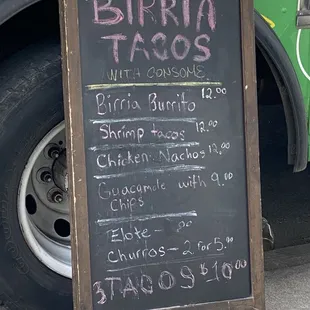 BIRRIA
TACOS
WITH CONSOME
Birria Burrito 12.00
Shrimp tacos 12.00
Chicken Nachos 12.00
Guacamole with 9.00
Chips
Elote -
Churros - 2 for 5.00
3 TACOS $10.00